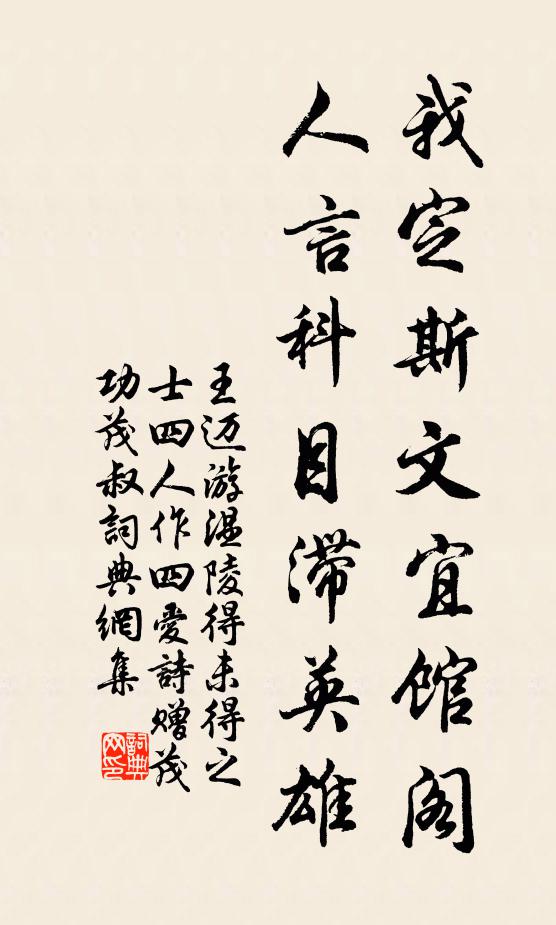 我定斯文宜馆阁
人言科目滞英雄
王迈游温陵得未得之
士四人作四爱詩赠茂
功茂叔詞典網集
詞典网印